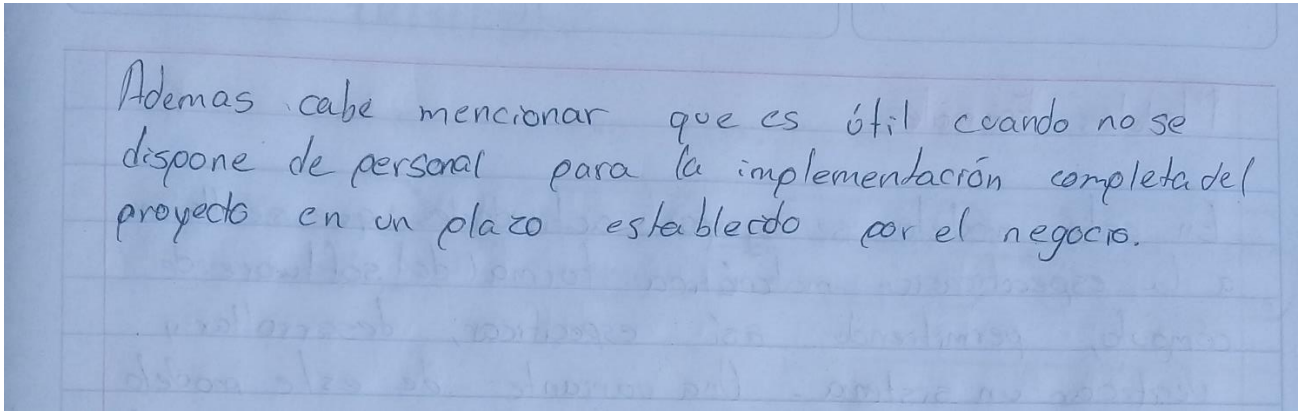 Ademas cabe mencionar que es útil cuando no se
dispone de personal para la implementación completa del
proyecto en un plazo establecido por el negocio.